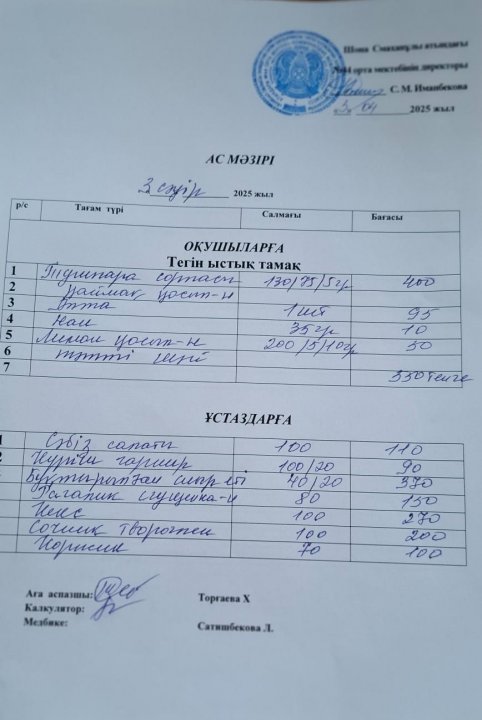 Шона Смаханұлы атындағы
№44 орта мектебінің директоры
С. М. Иманбекова
3. 04 2025 жыл
АС МӘЗІРІ
3 сәуір 2025 жыл
р/с Тағам түрі Салмағы Бағасы
ОҚУШЫЛАРҒА
Тегін ыстық тамақ
1 сорпасы 130/75/5гр 400
2 қаймақ қосып-н
3 1 шт 95
4 Нан 35гр 10
5 Лимон қосып-н 200/5/10гр 50
6 тәтті шәй
7 550 теңге
ҰСТАЗДАРҒА
1 Сәбіз салаты 100 110
Күріш гарнир 100/20 90
Бұқтырылған сиыр еті 40/20 370
сгущенка-н 80 150
Кекс 100 270
Сочник творожн 100 200
70 100
Аға аспазшы: Торгаева Х
Калкулятор:
Медбике: Сатишбекова Л.